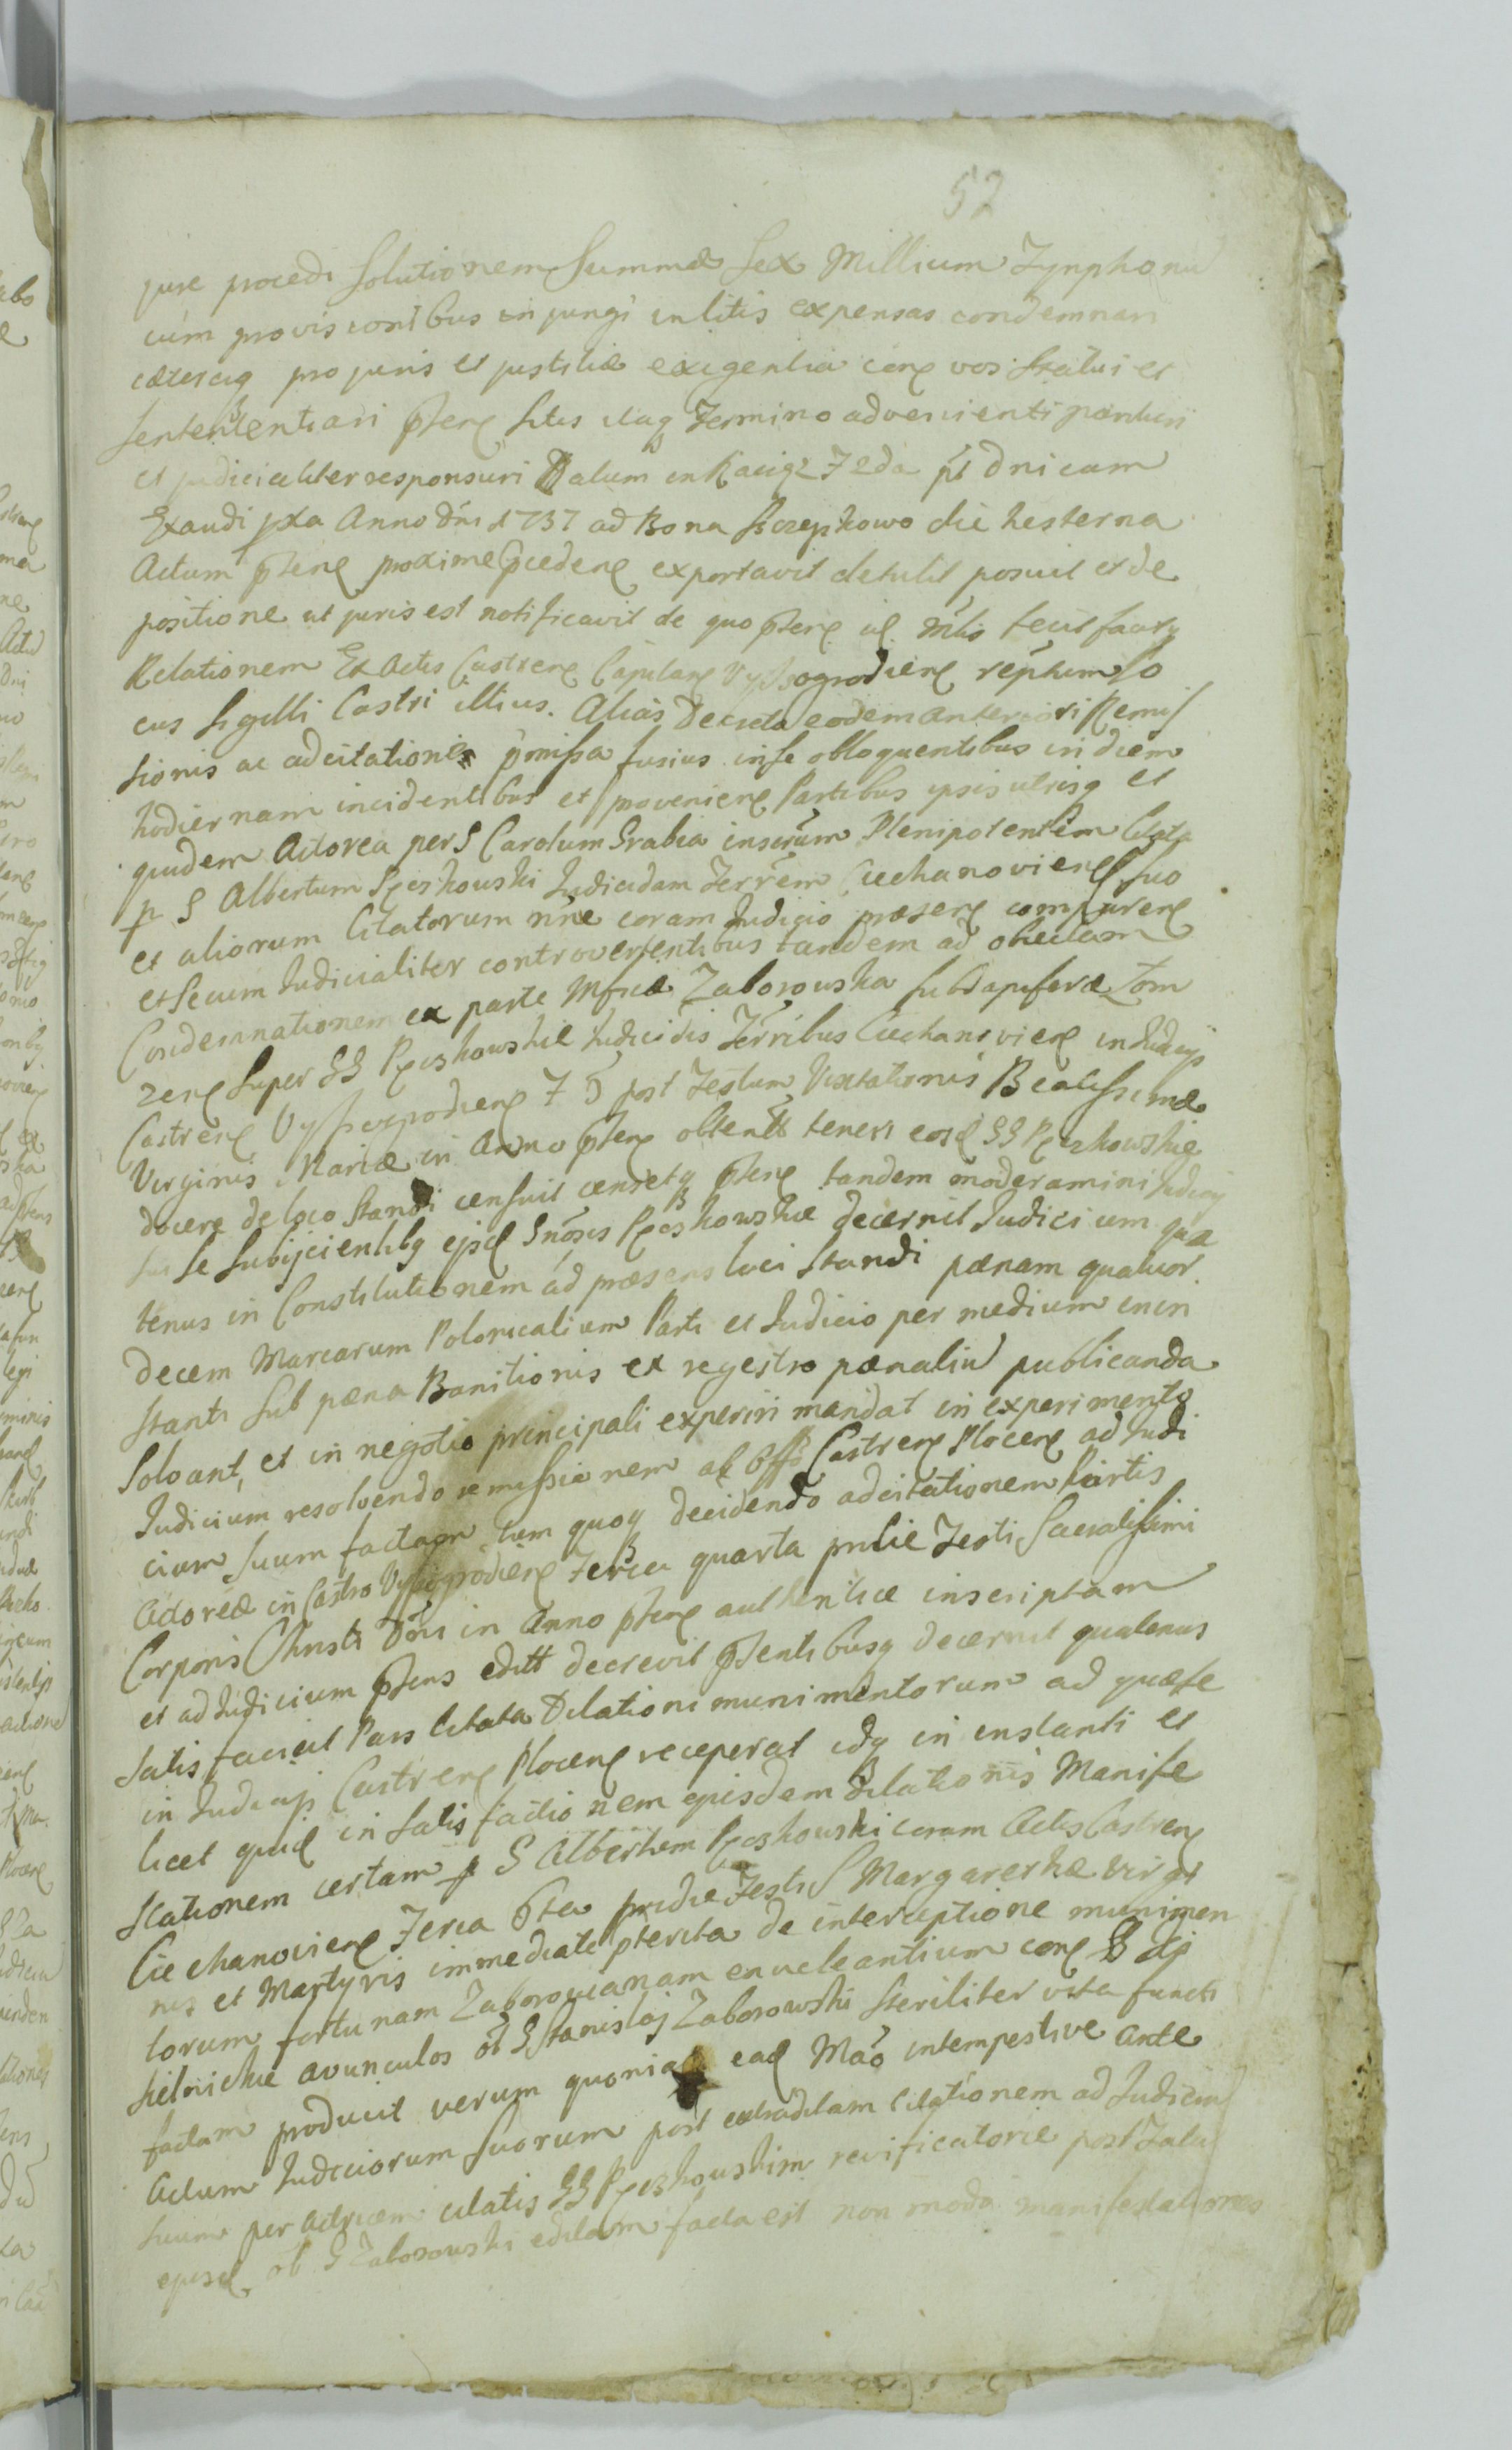 52
jure procedi solutionem summæ sex Millium Tynphonū
cum provisionibus injungi in litis expensas condemnari
cæteraq pro juris et justitiæ exigentia corā vos statui et
sentententiari pter sitis itaq Termino advenienti parituri
et judicialiter responsuri Datum in Raciąż F 2da pt dnicam
Exaudi pxa Anno Dni 1737 ad Bona Szczepkowo die hesterna
Actum pten proxime pceden exportavit detulit posuit et de
positione ut juris est notificavit de quo pten
Relationem Ex Actis Castren Capitan Vyssogrodien reptum Lo
cus sigilli Castri illius. Alias Decreto eodem anteriori Remis
sionis ac adcitationis pmissa fusius in se obloquentibus in diem
hodiernam incidentibus et provenien Partibus ipsis utrisq et
quidem Actorea per S Carolum Grabia Plenipotentem Citata
p S Albertum Pęczkowski Judicidam Terrem Ciechanovien suo
et aliorum Citatorum nne coram Judicio præsen comparen
et secum Judicialiter controvertentibus tandem ad objectam
Condemnationem ex parte Mfcæ Zaborowska Subdapiferæ Lom
zen super SS Pęczkowskie Judicidis Terribus Ciechanovien in Judicijs
Castren Vyssogrodien F 5 post Festum Visitationis Beatissimæ
Virginis Mariæ in Anno pten obtentā teneri eosd SS Pęczkowskie
docere de loco standi censuit censetq pten tandem moderamini Judicij
sui se subijcientibq ejsd Gnosis Pęczkowskie decernit Judicium qua
tenus in Constitutionem ad præsens loci standi pænam quatuor
decem Marcarum Polonicalium Parti et Judicio per medium in in
stanti sub pæna Banitionis ex regestro pænaliū publicanda
solvant, et in negotio principali experiri mandat in experimento
Judicium resolvendo remissionem ab Offo Castren Plocen ad Judi
cium suum factam tum quoq decidendo adcitationem Partis
Actoreæ in Castro Vyssogrodien Feria quarta pridie Festi Sacratissimi
Corporis Christi Dni in Anno pten authentice inscriptam
et ad Judicium ptens editā decrevit ptentibusq decernit quatenus
satisfaciat Pars Citata Dilationi munimentorum ad quæ se
in Judicijs Castren Plocen receperat idq in instanti et
licet quid in satisfactionem ejusdem dilationis Manife
stationem certam p S Albertum Pęczkowski coram Actis Castren
Ciechanovien Feria 6ta pridie Festi S Margarethæ Virgi
nis et Martyris immediate pterita de interceptione munimen
torum fortunam Zaborovianam enucleantium
Sielnickie avunculos ol S Stanislaj Zaborowski steriliter vita functi
factam producit verum quoniam ead Mão intempestive ante
Actum Judiciorum suorum post extraditam Citationem ad Judiciū
suum per Actricem citatis SS Pęczkowskim reificatorie post Fata
ejusd ol S Zaborowski editam facta est non modo manifestationes